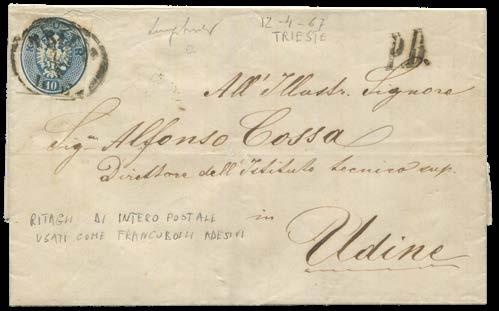 12-4-67
TRIESTE
P.D.
10
All'Illustr. Signore
Sig.r Alfonso Cossa
Direttore dell'Istituto tecnico sup.
in
Udine
RITAGLI DI INTERO POSTALE
USATI COME FRANCOBOLLI ADESIVI